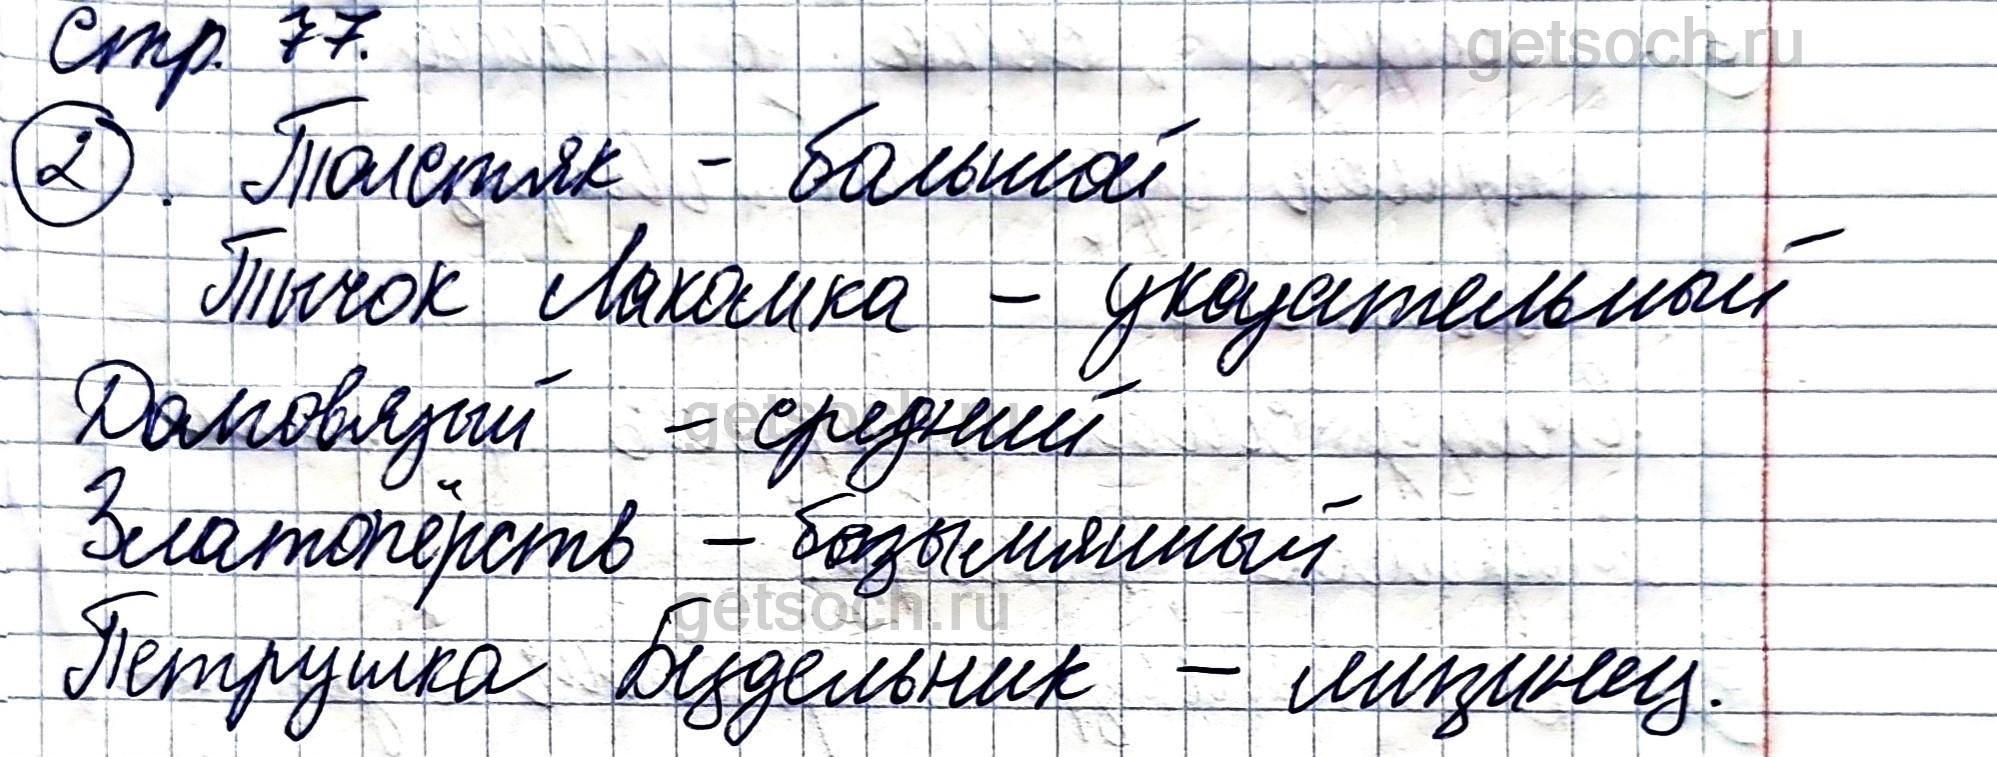 стр. 77.
getsoch.ru
2. Толстяк - большой
Тычок Лакомка - указательный
Долговязый - средний
getsoch.ru
Златопёрств - безымянный
getsoch.ru
Петрушка Бездельник - мизинец.